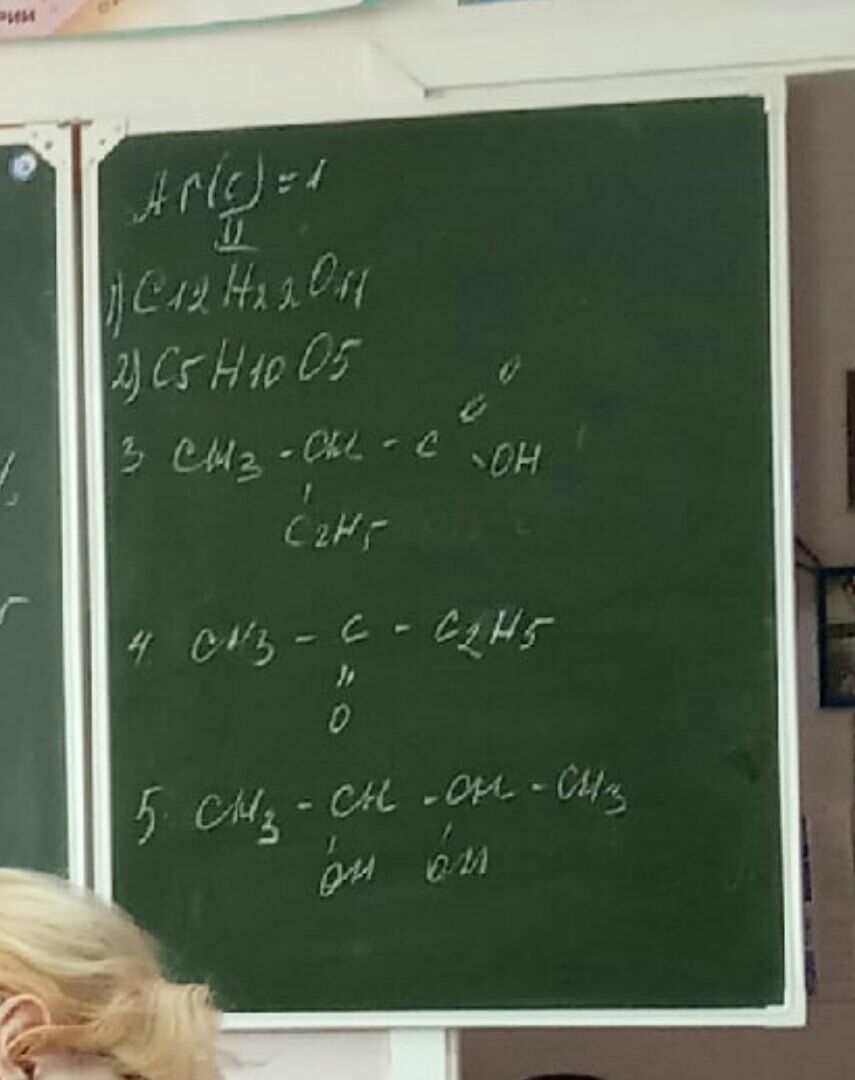 рии
Ar(C) = 1
II
1) C12H22O11
2) C5H10O5
O
3 CH3 - CH - C
OH
C2H5
4 CH3 - C - C2H5
"
O
5. CH3 - CH - CH - CH3
OH OH